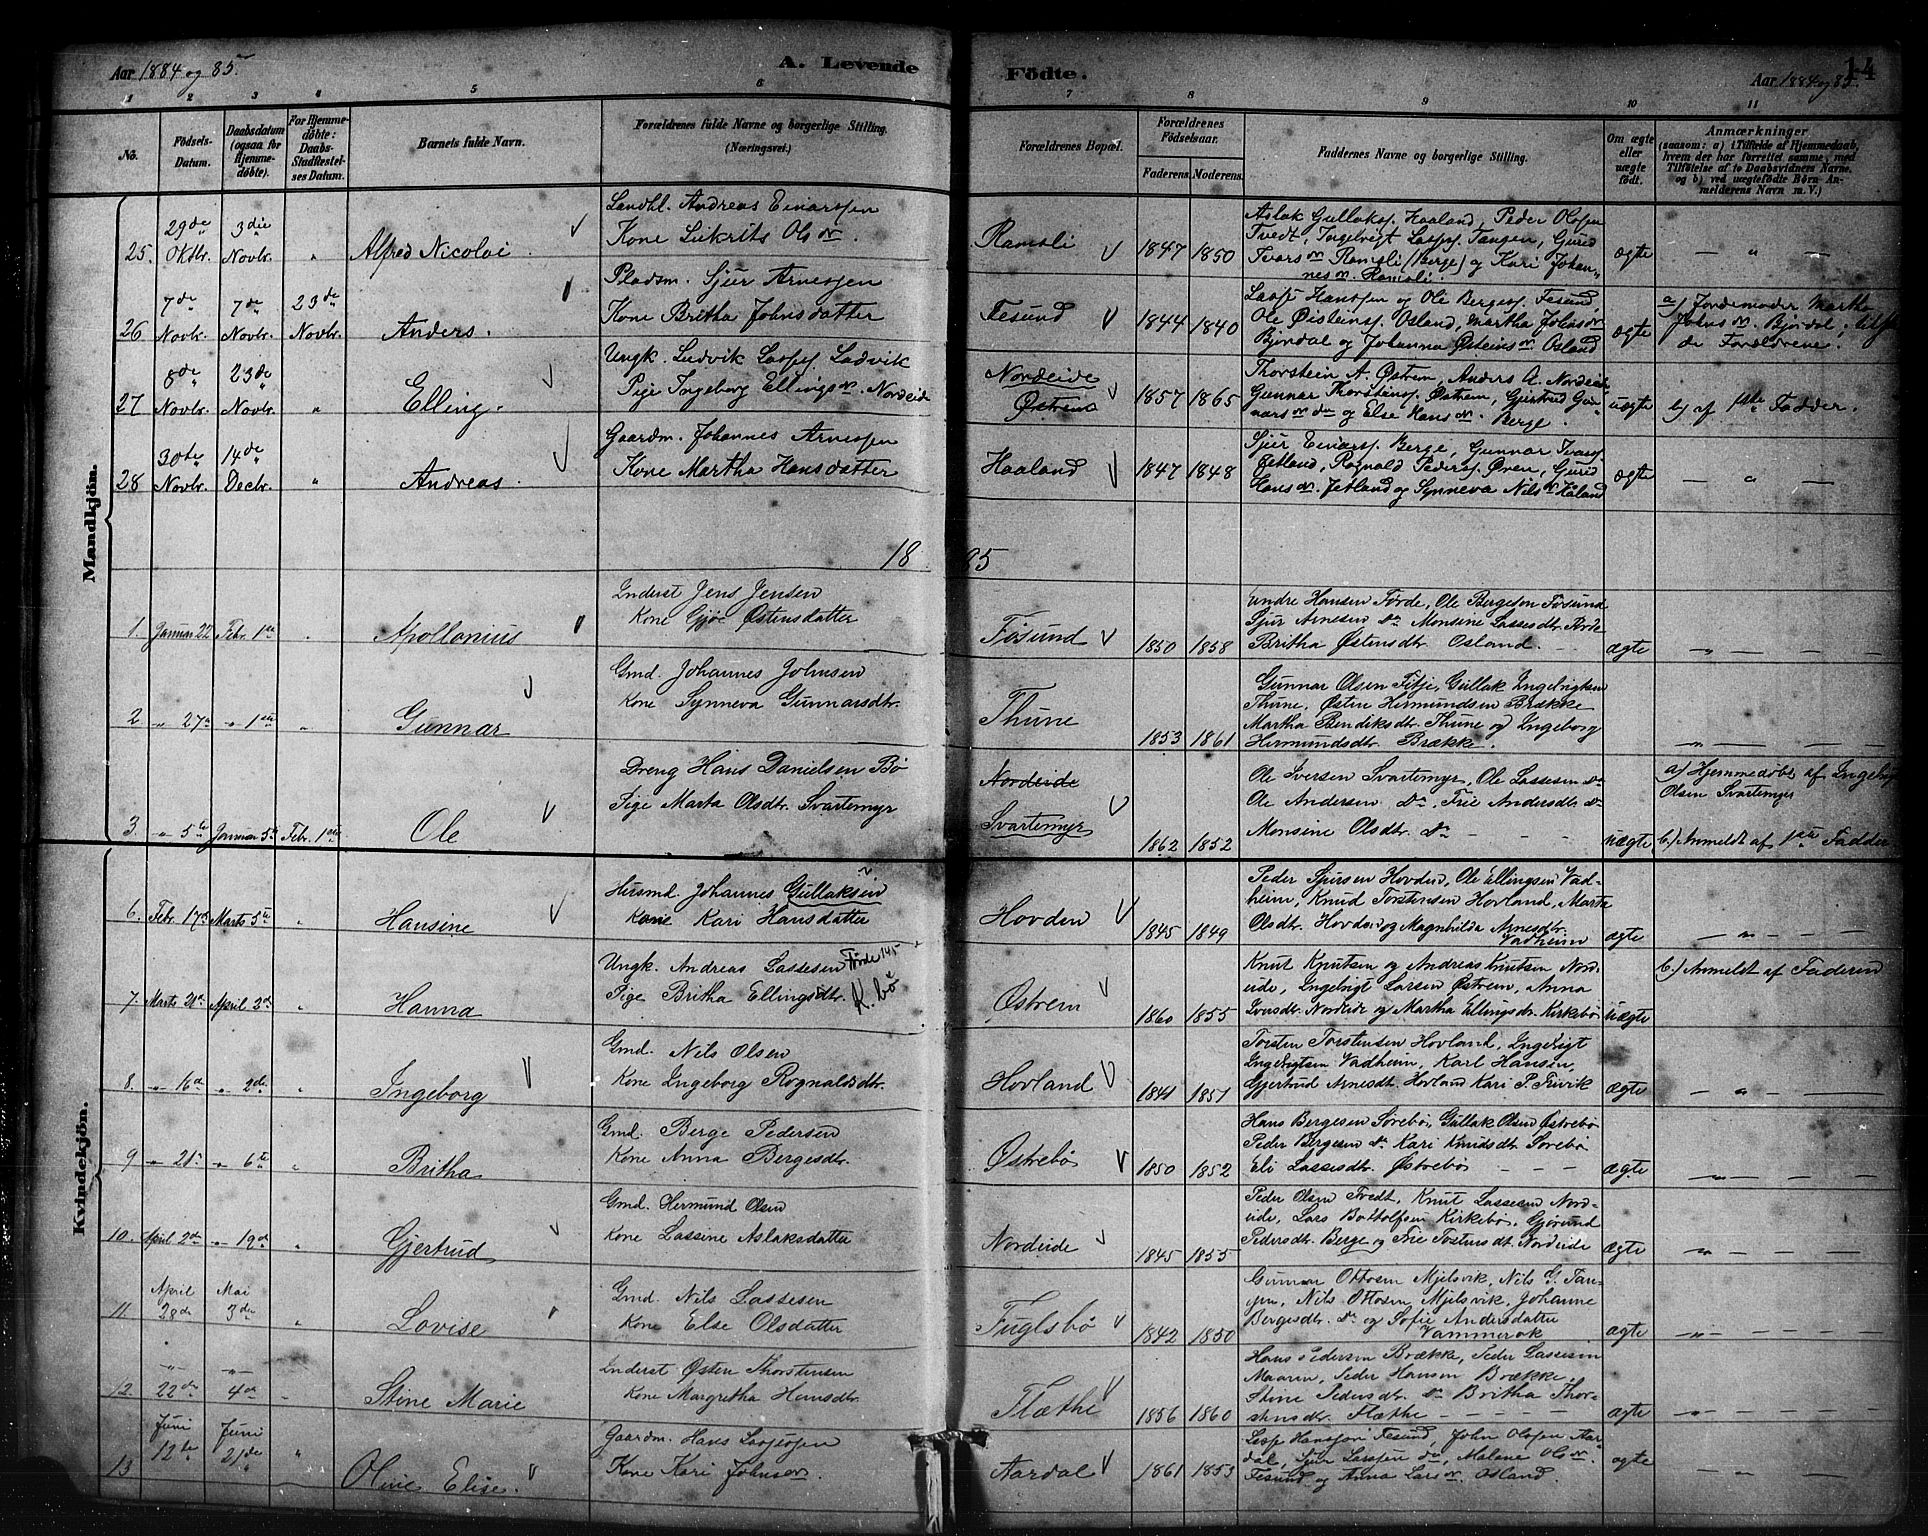 Aar 1884 og 85.
A. Levende Födte.
Aar 1884 og 85.
14
1 2 3 4 5 6 7 8 9 10 11
No.
Födsels-Datum.
Daabsdatum (ogsaa for Hjemmedöbte).
For Hjemmedöbte: Daabs-Stadfæstelses Datum.
Barnets fulde Navn.
Forældrenes fulde Navne og borgerlige Stilling. (Næringsvei.)
Forældrenes Bopæl.
Forældrenes Födselsaar.
Faderens. Moderens.
Faddernes Navne og borgerlige Stilling.
Om ægte eller uægte födt.
Anmærkninger
(saasom: a) i Tilfælde af Hjemmedaab, hvem der har forrettet samme, med Tilföielse af to Daabsvidners Navne, og b) ved uægtefödte Börn Anmelderens Navn m. V.)
Mandkjön.
25. 29de Oktbr. 3die Novbr. " Alfred Nicolai
Landhl. Andreas Einarssen
Kone Lukrits Olsdr.
Ramsli 1847 1850
Aslak Gullaks. Haaland, Peder Olssen
Tvedt, Ingebrigt Lasses. Tangen, Gurid
Ivarsdr Ramsli (Berge) og Kari Johan-
nesdr. Ramsli.
ægte — " —
26 7de Novbr. 7de Novbr. 23de Novbr. Anders.
Pladsm. Sjur Arnessen
Kone Britha Johnsdatter
Fesund 1844 1840
Lasse Hanssen og Ole Berges. Fesund
Ole Øisteins. Osland, Martha Johnsdr
Bjordal og Johanna Østeinsdr. Osland
ægte
a) Jordemoder Martha
Johnsdr. Bjordal,
de Forældrene.
27 8de Novbr. 23de Novbr. " Elling.
Ungk. Ludvik Lasses. Ladvik
Pige Ingeborg Ellingsdr. Nordeide
Nordeide
Østrem
1857 1865
Thorstein A. Østrem, Anders A. Nordeide
Gunnar Thorsteins. Østrem, Gjertrud Gun-
narsdr do og Else Hansdr. Berge.
uægte b) af 1ste Fadder.
28 30te Novbr. 14de Decbr. " Andreas.
Gaardm. Johannes Arnessen
Kone Martha Hansdatter
Haaland 1847 1848
Sjur Einars. Berge, Gunnar Ivars.
Jetland, Rognald Peders. Øren, Gurid
Hansdr. Jetland og Synneva Nilsdr Håland
ægte — " —
1885
1. Januar 22 Febr. 1ste " Apollonius
Inderst Jens Jensen
Kone Gjøe Østensdatter
Fösund 1850 1858
Endre Hansen Førde, Ole Bergeson Fösund
Sjur Arnesen do Monsine Lassesdtr. Förde
Britha Østensdtr. Osland.
ægte
2 " 27de " 1ste " Gunnar
Gmd. Johannes Johnsen
Kone Synneva Gunnarsdtr.
Thune 1853 1861
Gunnar Olsen Fitje, Gullak Ingebrigtsen
Thune, Østen Hermundsen Brække
Martha Bendiksdtr. Thune og Ingeborg
Hermundsdtr. Brække.
3. " 5te Januar 5te Febr. 1ste Ole
Dreng Hans Danielsen Bö
Pige Marta Olsdtr. Svartemyr
Nordeide
Svartemyr
1862 1852
Ole Iversen Svartemyr, Ole Lassesen do
Ole Andersen do. Frie Andersdtr do
Monsine Olsdtr. do
uægte
a) Hjemmedöbt af Ingebrigt
Olsen Svartemyr
b.) Anmeldt af 1ste Fadder
Kvindekjön.
6. Febr. 17de Marts 5te " Hansine
Husmd. Johannes Gullaksen
Kone Kari Hansdatter
Hovden 1845 1849
Peder Sjursen Hovden, Ole Ellingsen Vad-
heim, Knud Torstensen Hovland, Marta
Olsdtr. Hovden og Magnhilda Arnesdtr.
Vadheim
ægte
7. Marts 21de April 2de " Hanna
Ungk. Andreas Lassesen Förde 145
Pige Britha Ellingsdtr. K.bö
Østrem 1860 1855
Knut Knutsen og Andreas Knutsen Nord-
eide, Ingebrigt Larsen Østrem, Anna
Iversdtr. Nordeide og Martha Ellingsdr. Kirkebö
uægte
b.) Anmeldt af Faderen
8. " 16de " 2de " Ingeborg
Gmd. Nils Olsen
Kone Ingeborg Rognaldsdtr.
Hovland 1841 1851
Torsten Torstensen Hovland, Ingebrigt
Ingebrigtsen Vadheim, Karl Hansen,
Gjertrud Arnesdtr. Hovland Kari P. Trivik
ægte
9 " 21de " 6te " Britha
Gmd. Berge Pedersen
Kone Anna Bergesdtr.
Østrebö 1850 1852
Hans Bergesen Sörebö, Gullak Olsen Østrebö
Peder Bergesen do Kari Knudsdtr Sörebö
Eli Lassesdtr. Østrebö
ægte
10. April 2de " 19de " Gjertrud
Gmd. Hermund Olsen
Kone Lassine Aslaksdatter
Nordeide 1845 1855
Peder Olsen Tvedt, Knut Lassesen Nord-
eide, Lars Bottolfsen Kirkebö, Gjörund
Pedersdtr. Berge og Frie Tostensdt. Nordeide
ægte
11. April 28de Mai 3die " Lovise
Gmd. Nils Lassesen
Kone Else Olsdatter
Fuglsbö 1842 1850
Gunnar Ottosen Mjelsvik, Nils G. Tan-
gen, Nils Ottosen Mjelsvik, Johanne
Bergesdtr. do og Sofie Andersdatter
Vammerok
ægte
12. " 22de " 4de " Stine Marie
Inderst Østen Thorstensen
Kone Margretha Hemsdtr.
Flæthe 1856 1860
Hans Pedersen Brække, Peder Lassesen
Maaren, Peder Hansen Brække,
Stine Pedersdtr. do Britha Thor-
stensdtr. Flæthe
ægte
13 Juni 12te Juni 21de " Oline Elise.
Gaardm. Hans Lassesen
Kone Kari Johnsdr.
Aardal 1861 1853
Lasse Hanssen Fesund, John Olssen Aar-
dal, Sjur Larssen do, Malene Olsdr.
Fesund og Anna Larsdr. Osland.
ægte